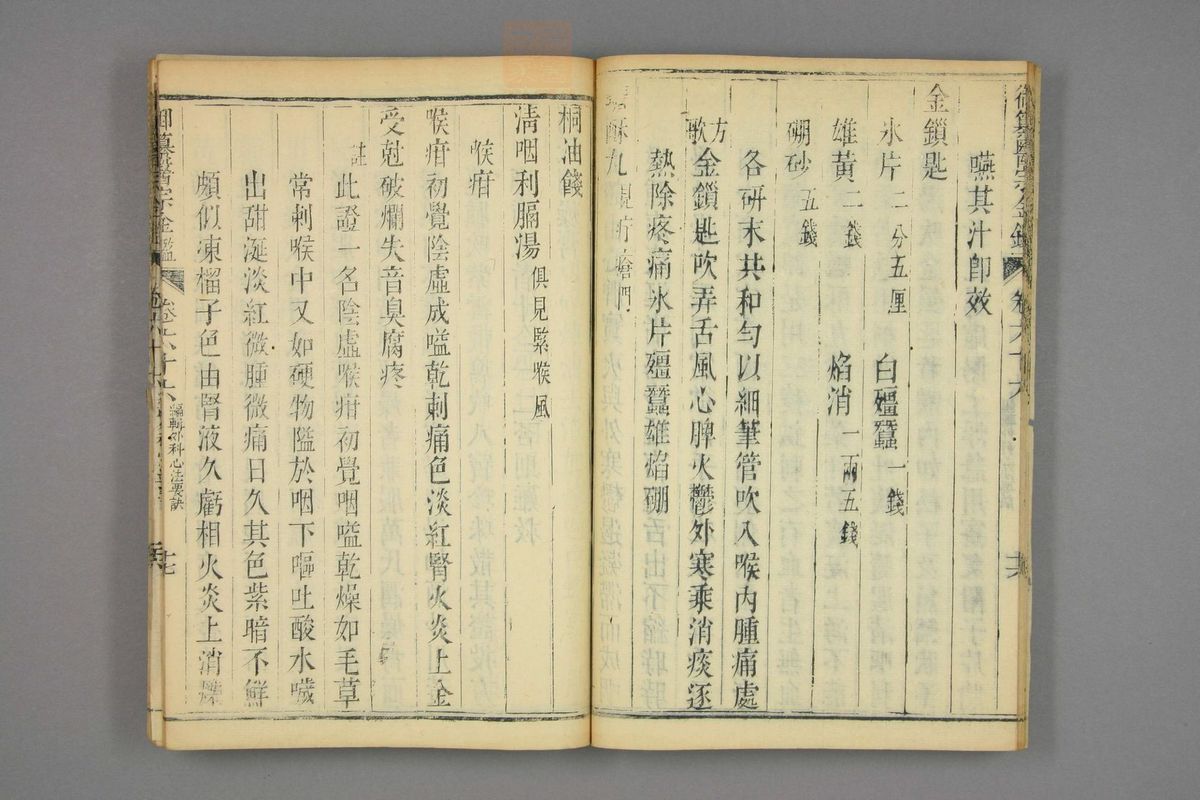 嚥其汁卽效
金鎖匙
氷片二分五厘 白殭蠶一錢
雄黃二錢 焰消一兩五錢
硼砂五錢
各研末共和勻以細筆管吹入喉內腫痛處
方歌金鎖匙吹弄舌風心脾火鬱外寒乘消痰逐
熱除疼痛氷片殭蠶雄焰硼
酥丸見疔瘡門
桐油餞
淸咽利膈湯俱見緊喉風
喉疳
喉疳初覺陰虛成嗌乾刺痛色淡紅腎火炎上金
受尅破爛失音臭腐疼
註此證一名陰虛喉疳初覺咽嗌乾燥如毛草
常刺喉中又如硬物隘於咽下嘔吐酸水噦
出甜涎淡紅微腫微痛日久其色紫暗不鮮
頗似凍榴子色由腎液久虧相火炎上消爍
御纂醫宗金鑑 卷六十六 編輯外科心法要訣